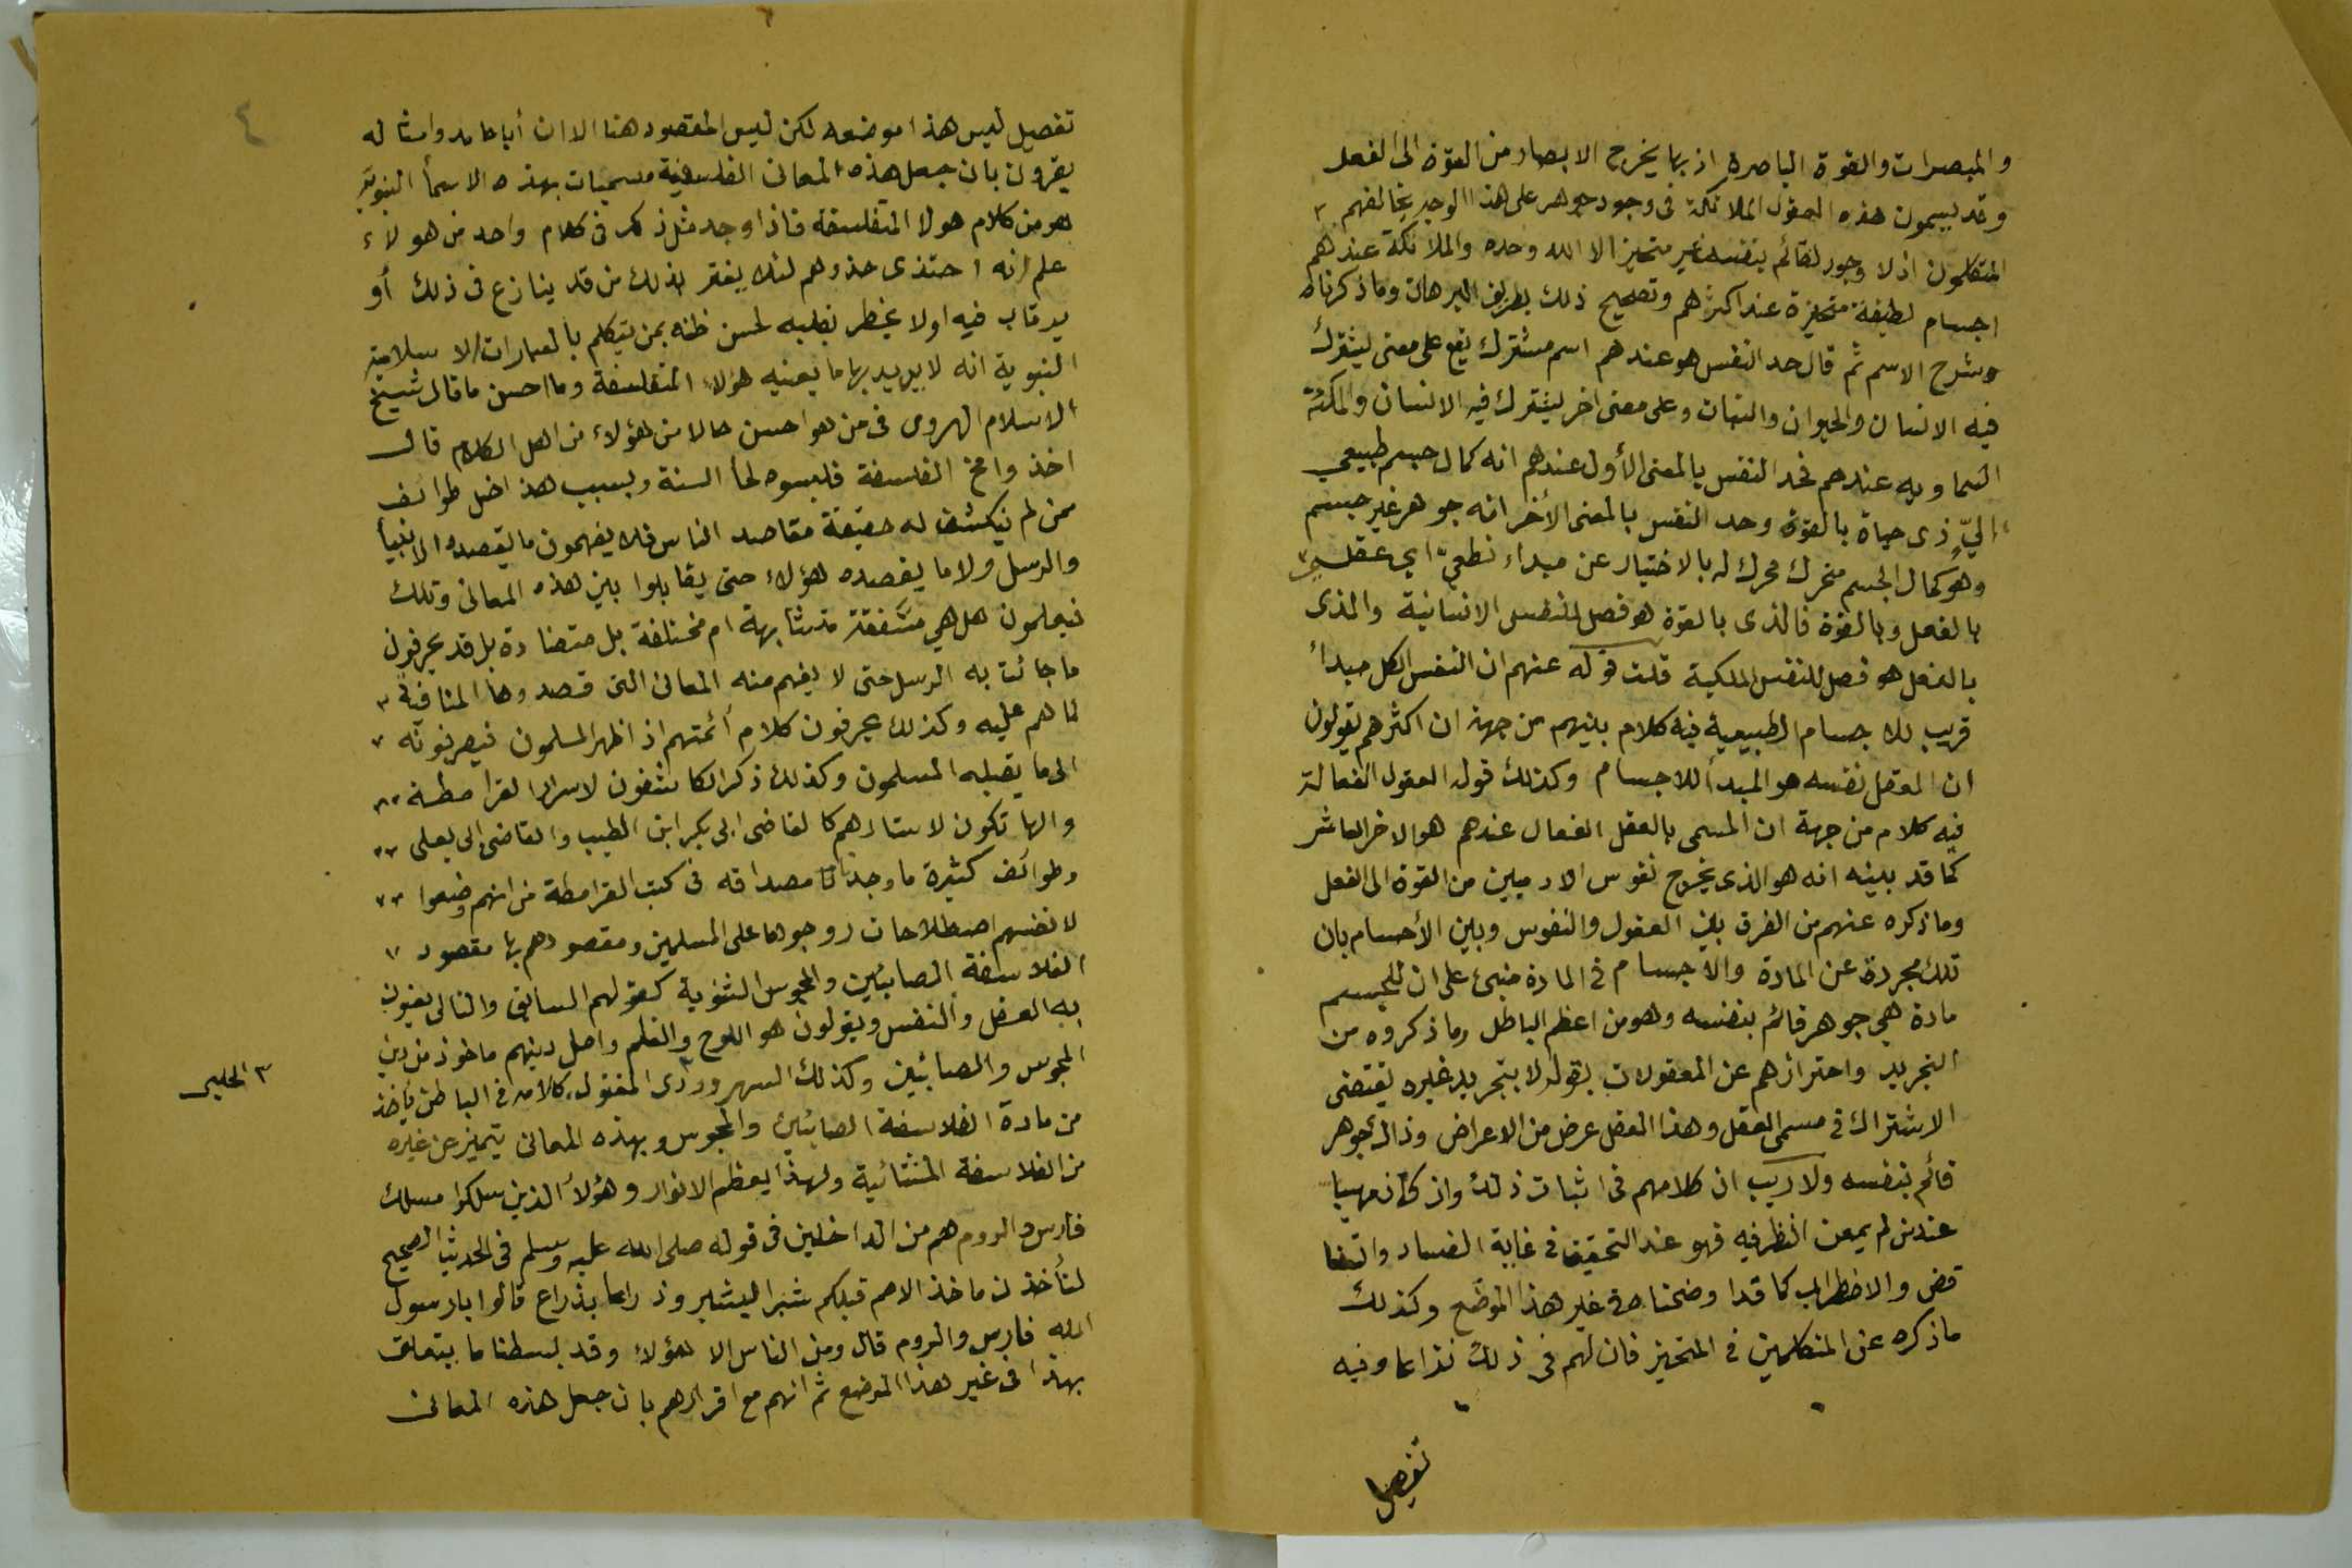 والمبصرات والقوة الباصرة اذ بها يخرج الابصار من القوة الى الفعل
وقد يسمون هذه العقول الملائكة فى وجود جوهر على هذا الوجه يخالفهم
المتكلمون اذ لا وجود لقائم بنفسه غير متحيز الا الله وحده والملائكة عندهم
اجسام لطيفة متحيزة عند اكثرهم وتصحيح ذلك بطريق البرهان وما ذكرناه
وشرح الاسم ثم قال حد النفس هو عندهم اسم مشترك يقع على معنى يشترك
فيه الانسان والحيوان والنبات وعلى معنى اخر يشترك فيه الانسان والملئكة
السماويه عندهم فحد النفس بالمعنى الأول عندهم انه كمال جسم طبيعي
اليّ ذى حياة بالقوة وحد النفس بالمعنى الأخر انه جوهر غير جسم
وهو كمال الجسم محرك له بالاختيار عن مبداء نطقيّ اي عقلي
بالفعل وبالقوة فالذى بالقوة هو فصل النفس الانسانية والذى
بالفعل هو فصل للنفس الملكية قلت قوله عنهم ان النفس الكل مبدأ
قريب للاجسام الطبيعية فيه كلام بينهم من جهة ان اكثرهم يقولون
ان العقل نفسه هو المبدأ للاجسام وكذلك قوله العقول الفعالة
فيه كلام من جهة ان المسمى بالعقل الفعال عندهم هو الاخر العاشر
كما قد بينه انه هو الذى يخرج نفوس الادميين من القوة الى الفعل
وما ذكره عنهم من الفرق بين العقول والنفوس وبين الأجسام بان
تلك مجردة عن المادة والاجسام فى المادة مبنى على ان للجسم
مادة هي جوهر قائم بنفسه وهو من اعظم الباطل وما ذكروه من
التجريد واحترازهم عن المعقولات بقوله لا بتجريد غيره يقتضى
الاشتراك فى مسمى العقل وهذا العقل عرض من الاعراض وذاك جوهر
قائم بنفسه ولا ريب ان كلامهم فى اثبات ذلك وان كان مهيبا
عند من لم يمعن النظر فيه فهو عند التحقيق فى غاية الفساد والتنا
قض والاضطراب كما قد اوضحناه فى غير هذا الموضع وكذلك
ما ذكره عن المتكلمين فى المتحيز فان لهم فى ذلك نزاعا وفيه
تفصيل
٤
تفصيل ليس هذا موضعه لكن ليس المقصود هنا الا ان أبا حامد وامثاله
يقرون بان جعل هذه المعانى الفلسفية مسميات بهذه الاسمأ النبويّة
هو من كلام هولا المتفلسفة فاذا وجد مثل ذلك فى كلام واحد من هولاء
علم انه احتذى حذوهم لئلا يغتر بذلك من قد ينازع فى ذلك أو
يرتاب فيه او لا يخطر بقلبه لحسن ظنه بمن يتكلم بالعبارات الاسلامية
النبوية انه لا يريد بها ما يعنيه هؤلاء المتفلسفة وما احسن ما قال شيخ
الاسلام الهروى فى من هو احسن حالا من هؤلاء من اهل الكلام قال
اخذوا مخ الفلسفة فلبسوه لحأ السنة وبسبب هذا ضل طوائف
ممن لم ينكشف له حقيقة مقاصد الناس فلا يفهمون ما يقصده الانبيأ
والرسل ولا ما يقصده هؤلاء حتى يقابلوا بين هذه المعانى وتلك
فيعلمون هل هي متفقة متشابهة ام مختلفة بل متضادة بل قد يحرفون
ما جائت به الرسل حتى لا يفهم منه المعانى التى قصدوها المنافية
لما هم عليه وكذلك يحرفون كلام أئمتهم اذ اظهر المسلمون فيصرفونه
الى ما يقبله المسلمون وكذلك ذكر الكاشفون لاسرار القرامطة
والهاتكون لاستارهم كالقاضى ابى بكر ابن الطيب والقاضى ابى يعلى
وطوائف كثيرة ما وجدنا مصداقه فى كتب القرامطة من انهم وضعوا
لانفسهم اصطلاحات روجوها على المسلمين ومقصودهم بها مقصود
الفلاسفة الصابئين والمجوس الثنوية كقولهم السابق والتالى يعنون
به العقل والنفس ويقولون هو اللوح والقلم واصل دينهم ماخوذ من دين
المجوس والصابئين وكذلك السهروردى المقتول كلامه فى الباطن ياخذ
من مادة الفلاسفة الصابئين والمجوس وبهذه المعانى يتميز عن غيره
من الفلاسفة المشائية ولهذا يعظم الانوار وهؤلاء الذين سلكوا مسلك
فارس والروم هم من الداخلين فى قوله صلى الله عليه وسلم فى الحديث الصحيح
لتأخذن ماخذ الامم قبلكم شبرا بشبر وذراعا بذراع قالوا يا رسول
الله فارس والروم قال ومن الناس الا هؤلاء وقد بسطنا ما يتعلق
بهذا فى غير هذا الموضع ثم انهم مع اقرارهم بان جعل هذه المعانى
٣ الحلبى